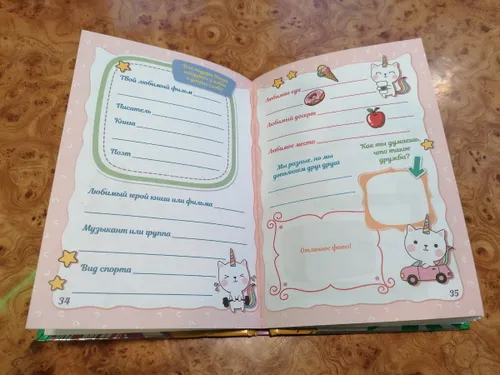 Твой любимый фильм
Писатель
Книга
Поэт
Любимый герой книги или фильма
Музыкант или группа
Вид спорта
34
Любимое еда
Любимый десерт
Любимое место
Мы разные, но мы
дополняем друг друга
Как ты думаешь,
что такое
дружба?
Отличное фото!
35